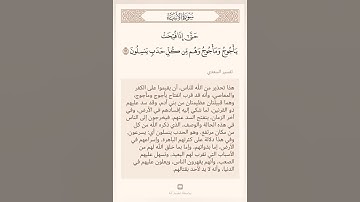 سورة الأنبياء
حَتَّىٰ إِذَا فُتِحَتْ
يَأْجُوجُ وَمَأْجُوجُ وَهُم مِّن كُلِّ حَدَبٍ يَنسِلُونَ
تفسير السعدي
هذا تحذير من الله للناس، أن يقيموا على الكفر
والمعاصي، وأنه قد قرب انفتاح يأجوج ومأجوج،
وهما قبيلتان عظيمتان من بني آدم، وقد سد عليهم
ذو القرنين، لما شكي إليه إفسادهم في الأرض، وفي
آخر الزمان، ينفتح السد عنهم، فيخرجون إلى الناس
في هذه الحالة والوصف، الذي ذكره الله من كل
من مكان مرتفع، وهو الحدب ينسلون أي: يسرعون.
وفي هذا دلالة على كثرتهم الباهرة، وإسراعهم في
الأرض، إما بذواتهم، وإما بما خلق الله لهم من
الأسباب التي تقرب لهم البعيد، وتسهل عليهم
الصعب، وأنهم يقهرون الناس، ويعلون عليهم في
الدنيا، وأنه لا يد لأحد بقتالهم.